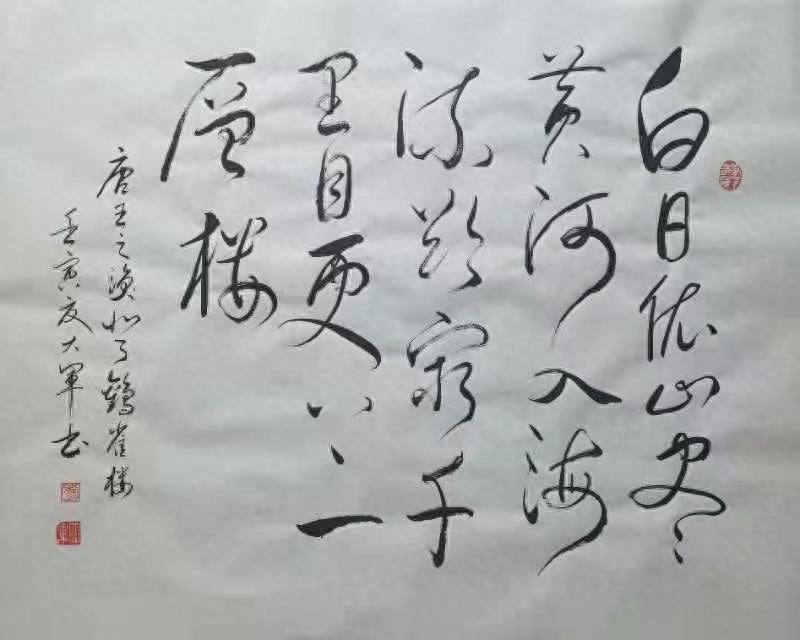 白日依山尽
黄河入海
流欲穷千
里目更上一
层楼
唐王之涣雀楼
壬寅夏大军书